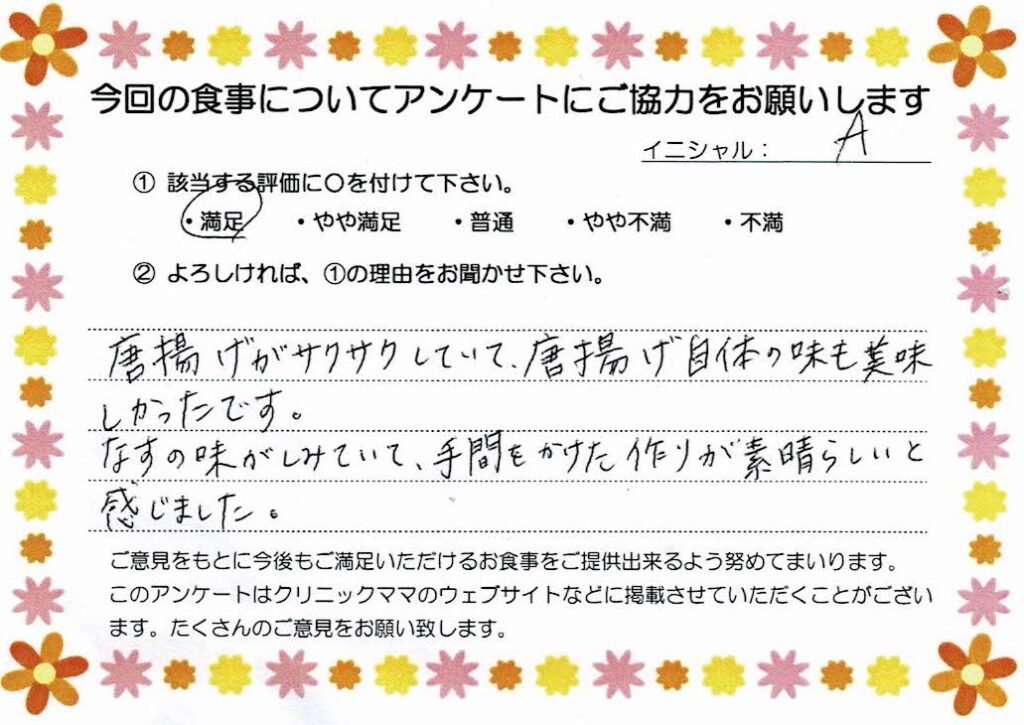 今回の食事についてアンケートにご協力をお願いします
イニシャル： A
① 該当する評価に〇を付けて下さい。
・満足 ・やや満足 ・普通 ・やや不満 ・不満
② よろしければ、①の理由をお聞かせ下さい。
唐揚げがサクサクしていて、唐揚げ自体の味も美味
しかったです。
なすの味がしみていて、手間をかけた作りが素晴らしいと
感じました。
ご意見をもとに今後もご満足いただけるお食事をご提供出来るよう努めてまいります。
このアンケートはクリニックママのウェブサイトなどに掲載させていただくことがござい
ます。たくさんのご意見をお願い致します。